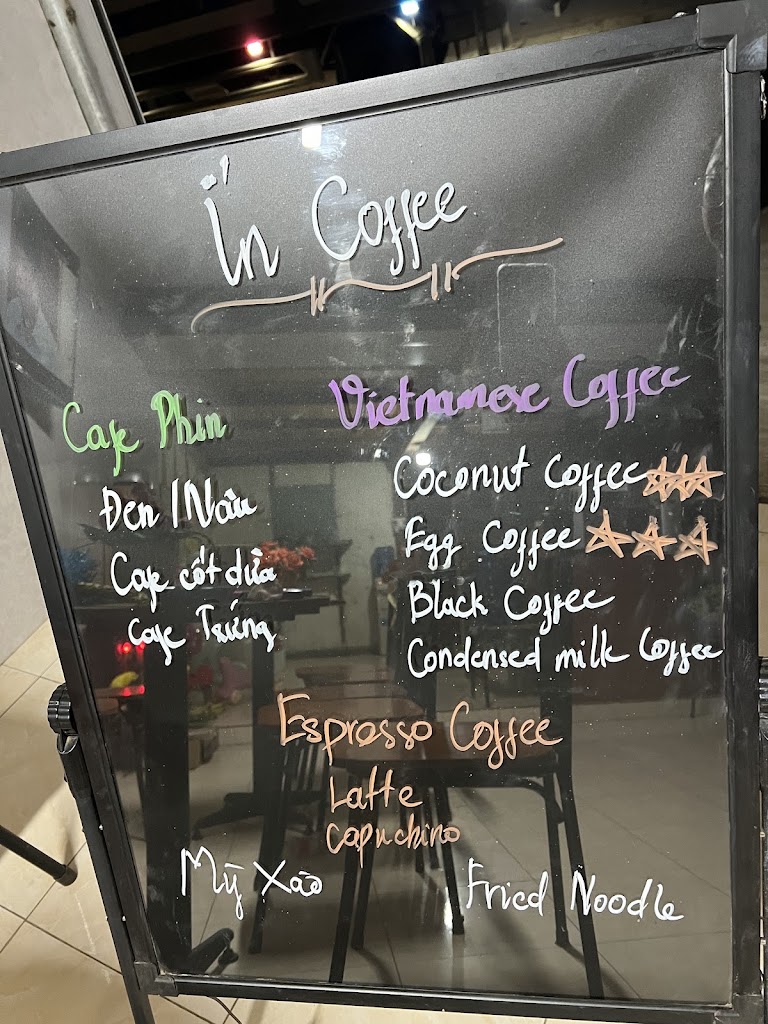 Ỉn Coffee
Cafe Phin
Đen / Nâu
Cafe cốt dừa
Cafe Trứng
Vietnamese Coffee
Coconut Coffee ☆☆☆
Egg Coffee ☆☆☆
Black Coffee
Condensed milk Coffee
Espresso Coffee
Latte
Capuchino
Mỳ Xào
Fried Noodle